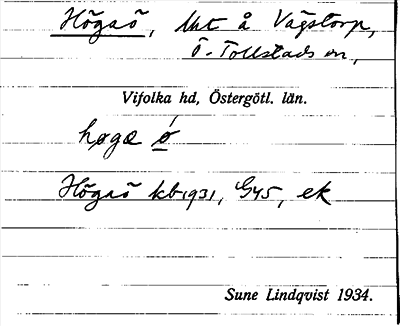 Högaö, lht å Vägstorp,
Ö. Tollstads sn,
Vifolka hd, Östergötl. län.
høgæ ǿ
Högaö kb 1931, G45, ek
Sune Lindqvist 1934.